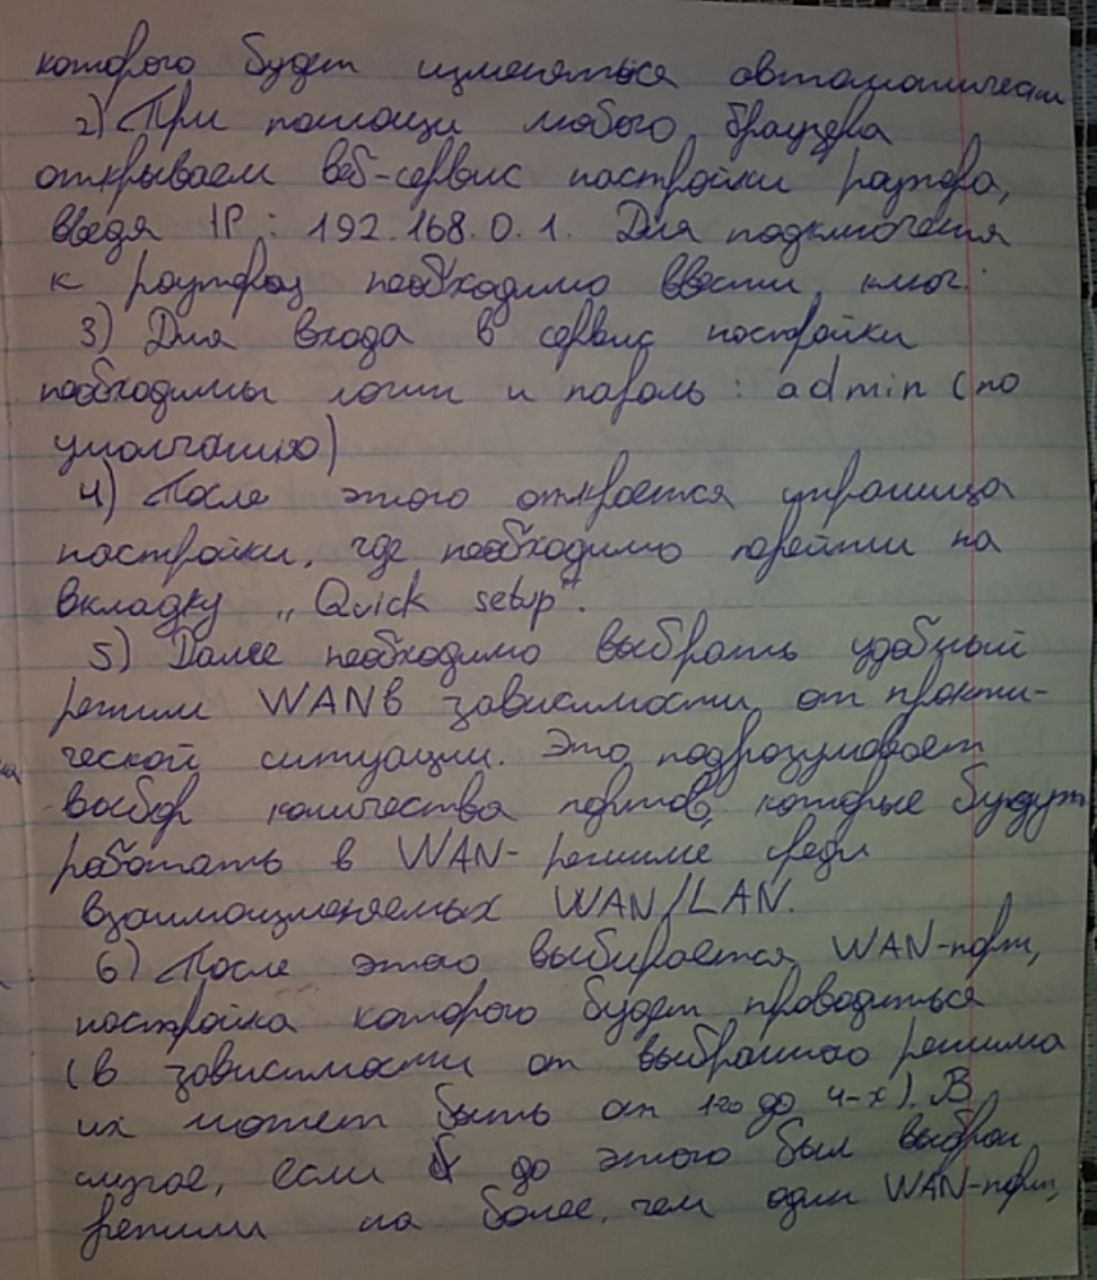 которого будет изменяться автоматически
2) При помощи любого браузера
открываем веб-сервис настройки роутера,
введя IP: 192.168.0.1. Для подключения
к роутеру необходимо ввести ключ.
3) Для входа в сервис настройки
необходимы логин и пароль: admin (по
умолчанию)
4) После этого откроется страница
настройки, где необходимо перейти на
вкладку „Quick setup".
5) Далее необходимо выбрать удобный
режим WAN в зависимости от практи-
ческой ситуации. Это подразумевает
выбор количества портов, которые будут
работать в WAN-режиме среди
взаимоизменяемых WAN/LAN.
6) После этого выбирается WAN-порт,
настройка которого будет проводиться
(в зависимости от выбранного режима
их может быть от 1-го до 4-х). В
случае, если до этого был выбран
режим на более, чем один WAN-порт,